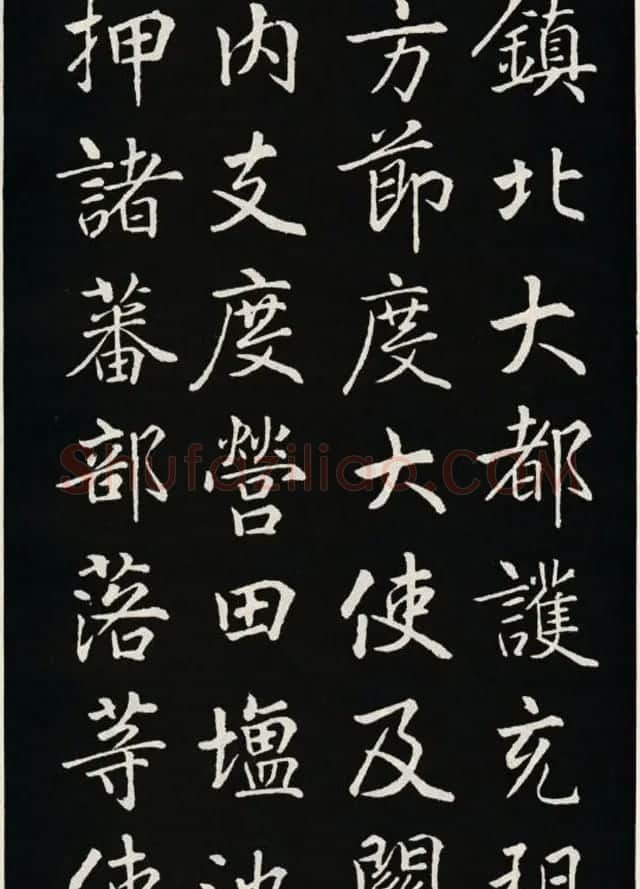 鎮北大都護充朔
方節度大使及關
内支度營田塩池
押諸蕃部落等使
Shufaziliao.COM